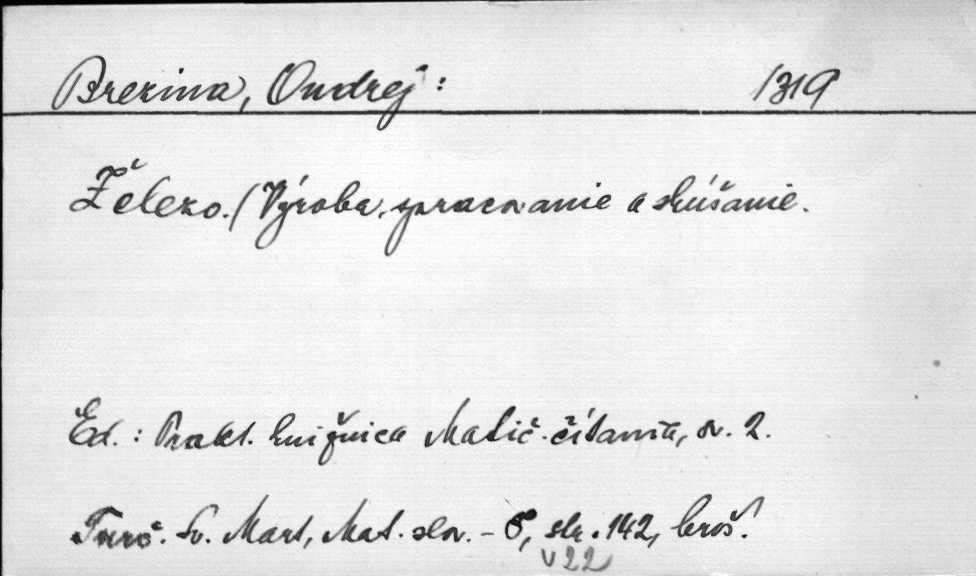 Brezina, Ondrej: 1319
Železo. (Výroba, spracovanie a skúšanie.
Ed.: Prakt. knižnica Matič. čítania, sv. 2.
Turč. Sv. Mart, Mat. slov. - 8°, str. 142, broš.
V 22